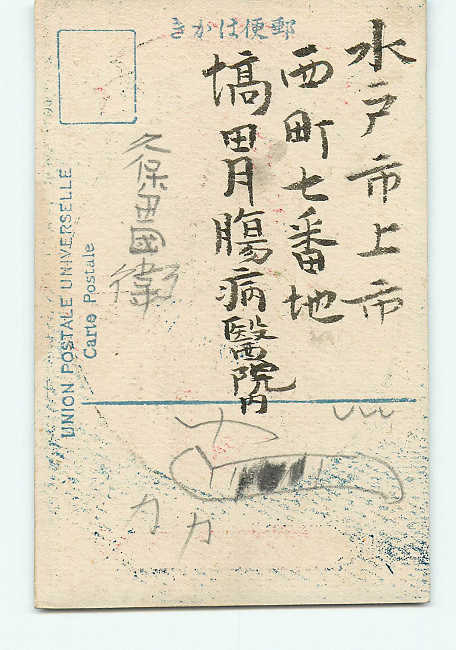 きがは便郵
水戸市上市
西町七番地
塙胃腸病醫院内
久保田國衛
UNION POSTALE UNIVERSELLE
Carte Postale
カカ